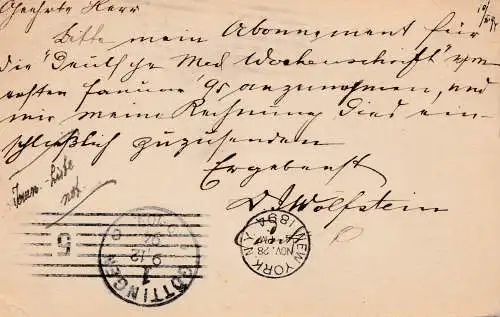 Geehrter Herr
Bitte mein Abonnement für
die "Deutsche Med Wochenschrift" vom
ersten Januar 95 anzunehmen, und
mir meine Rechnung dies ein-
schließlich zuzusenden
Ergebenst
D. I. Wolfstein
Liste
not
5
GÖTTINGEN
1
9.12
94
NEW YORK N.Y.
NOV. 28
PM
1894